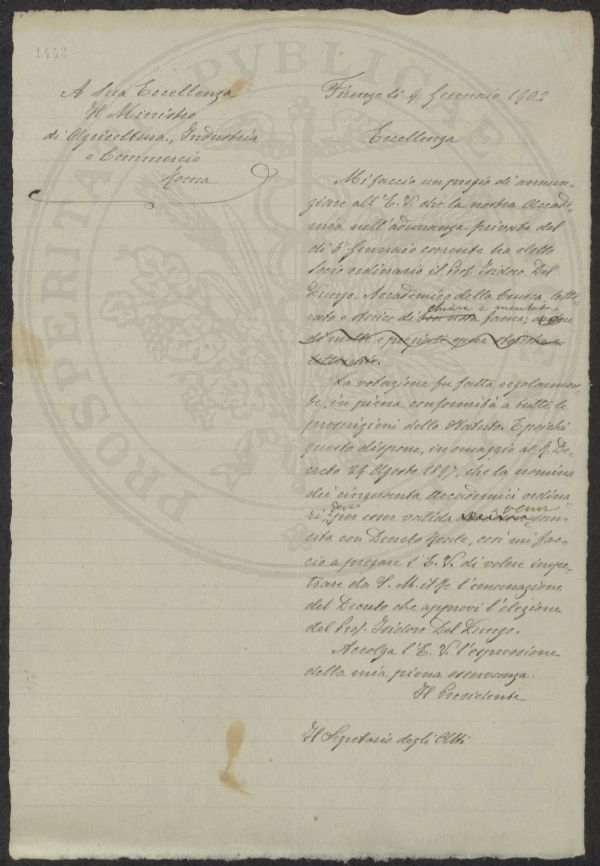 1442
A Sua Eccellenza
Il Ministro
di Agricoltura, Industria
e Commercio
Roma
Firenze li 9 Gennaio 1902
Eccellenza
Mi faccio un pregio di annun-
ziare all'E. V. che la nostra Accade-
mia nell'adunanza privata del
di 5 Gennaio corrente ha eletto
Socio ordinario il Prof. Isidoro Del
Lungo, Accademico della Crusca, lette-
chiara e meritata
rato e storico di ben nota fama; autore
di molte e pregiate opere storiche e
letterarie.
La votazione fu fatta regolarmen-
te, in piena conformità a tutte le
prescrizioni dello Statuto. E poichè
questo dispone, in omaggio al R. De-
creto 29 Agosto 1897, che la nomina
dei cinquanta Accademici ordina-
deve venir
ri, per esser valida san-
cita con Decreto Reale, così mi fac-
cio a pregare l'E. V. di volere impe-
trare da S. M. il Re l'emanazione
del Decreto che approvi l'elezione
del Prof. Isidoro Del Lungo.
Accolga l'E. V. l'espressione
della mia piena osservanza.
Il Presidente
Il Segretario degli Atti
PVBLICAE
PROSPERITATI